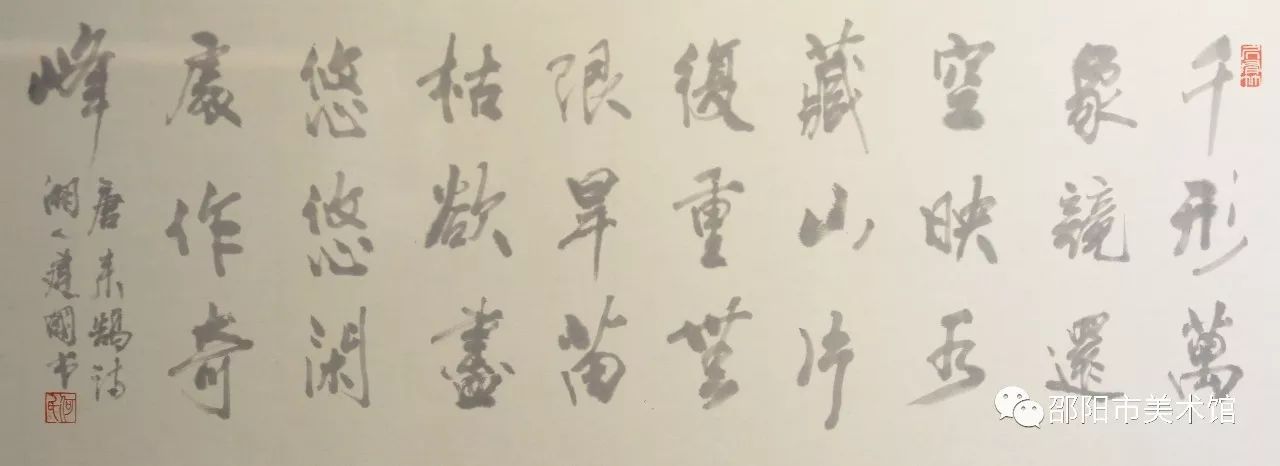 千形萬
象競還
空映水
藏山片
復重無
限旱苗
枯欲盡
悠悠閑
處作奇
峰
唐来鵠詩
湘人國书
邵阳市美术馆